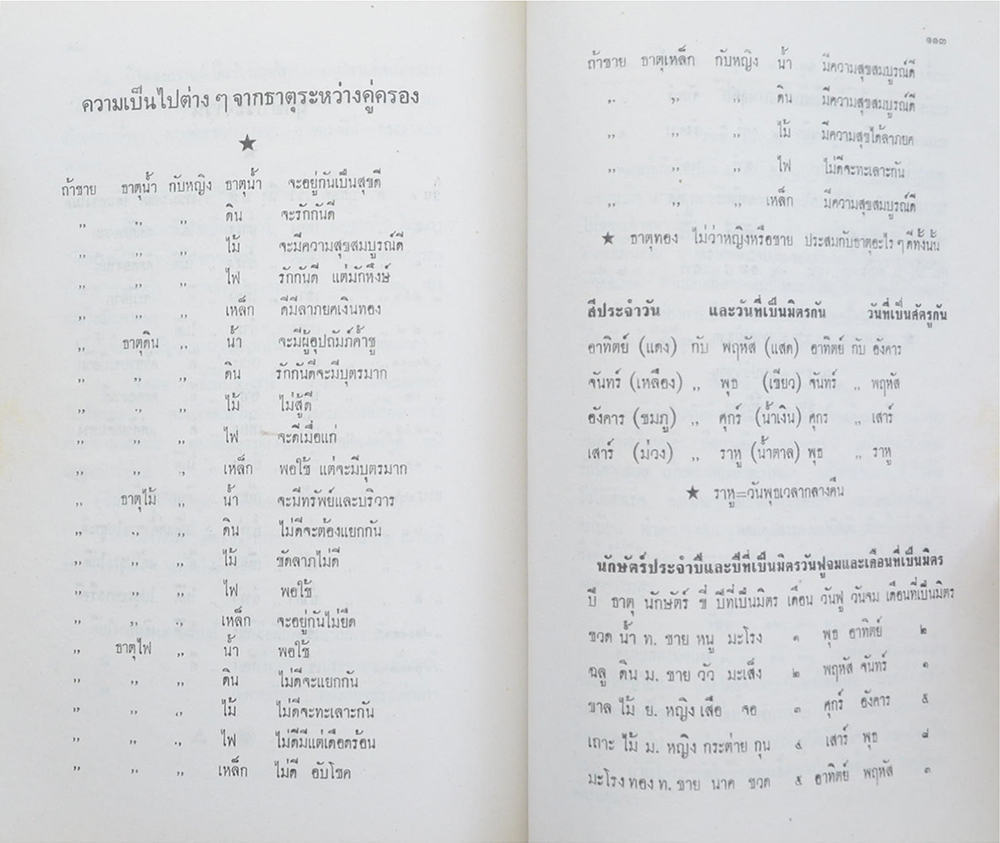 ความเป็นไปต่าง ๆ จากธาตุระหว่างคู่ครอง
★
ถ้าชาย ธาตุน้ำ กับหญิง ธาตุน้ำ จะอยู่กันเป็นสุขดี
,, ,, ,, ดิน จะรักกันดี
,, ,, ,, ไม้ จะมีความสุขสมบูรณ์ดี
,, ,, ,, ไฟ รักกันดี แต่มักหึงษ์
,, ,, ,, เหล็ก ดีมีลาภยศเงินทอง
,, ธาตุดิน ,, น้ำ จะมีผู้อุปถัมภ์ค้ำชู
,, ,, ,, ดิน รักกันดีจะมีบุตรมาก
,, ,, ,, ไม้ ไม่สู้ดี
,, ,, ,, ไฟ จะดีเมื่อแก่
,, ,, ,, เหล็ก พอใช้ แต่จะมีบุตรมาก
,, ธาตุไม้ ,, น้ำ จะมีทรัพย์และบริวาร
,, ,, ,, ดิน ไม่ดีจะต้องแยกกัน
,, ,, ,, ไม้ ขัดลาภไม่ดี
,, ,, ,, ไฟ พอใช้
,, ,, ,, เหล็ก จะอยู่กันไม่ยืด
,, ธาตุไฟ ,, น้ำ พอใช้
,, ,, ,, ดิน ไม่ดีจะแยกกัน
,, ,, ,, ไม้ ไม่ดีจะทะเลาะกัน
,, ,, ,, ไฟ ไม่ดีมีแต่เดือดร้อน
,, ,, ,, เหล็ก ไม่ดี อับโชค
๑๑๓
ถ้าชาย ธาตุเหล็ก กับหญิง น้ำ มีความสุขสมบูรณ์ดี
,, ,, ,, ดิน มีความสุขสมบูรณ์ดี
,, ,, ,, ไม้ มีความสุขได้ลาภยศ
,, ,, ,, ไฟ ไม่ดีจะทะเลาะกัน
,, ,, ,, เหล็ก มีความสุขสมบูรณ์ดี
★ ธาตุทอง ไม่ว่าหญิงหรือชาย ประสมกับธาตุอะไร ๆ ดีทั้งนั้น
สีประจำวัน และวันที่เป็นมิตรกัน วันที่เป็นศัตรูกัน
อาทิตย์ (แดง) กับ พฤหัส (แสด) อาทิตย์ กับ อังคาร
จันทร์ (เหลือง) ,, พุธ (เขียว) จันทร์ ,, พฤหัส
อังคาร (ชมภู) ,, ศุกร์ (น้ำเงิน) ศุกร ,, เสาร์
เสาร์ (ม่วง) ,, ราหู (น้ำตาล) พุธ ,, ราหู
★ ราหู=วันพุธเวลากลางคืน
นักษัตร์ประจำปีและปีที่เป็นมิตรวันฟูจมและเดือนที่เป็นมิตร
ปี ธาตุ นักษัตร์ ขี่ ปีที่เป็นมิตร เดือน วันฟู วันจม เดือนที่เป็นมิตร
ชวด น้ำ ท. ชาย หนู มะโรง ๑ พุธ อาทิตย์ ๒
ฉลู ดิน ม. ชาย วัว มะเส็ง ๒ พฤหัส จันทร์ ๑
ขาล ไม้ ย. หญิง เสือ จอ ๓ ศุกร์ อังคาร ๕
เถาะ ไม้ ม. หญิง กระต่าย กุน ๔ เสาร์ พุธ ๘
มะโรง ทอง ท. ชาย นาค ชวด ๕ อาทิตย์ พฤหัส ๓